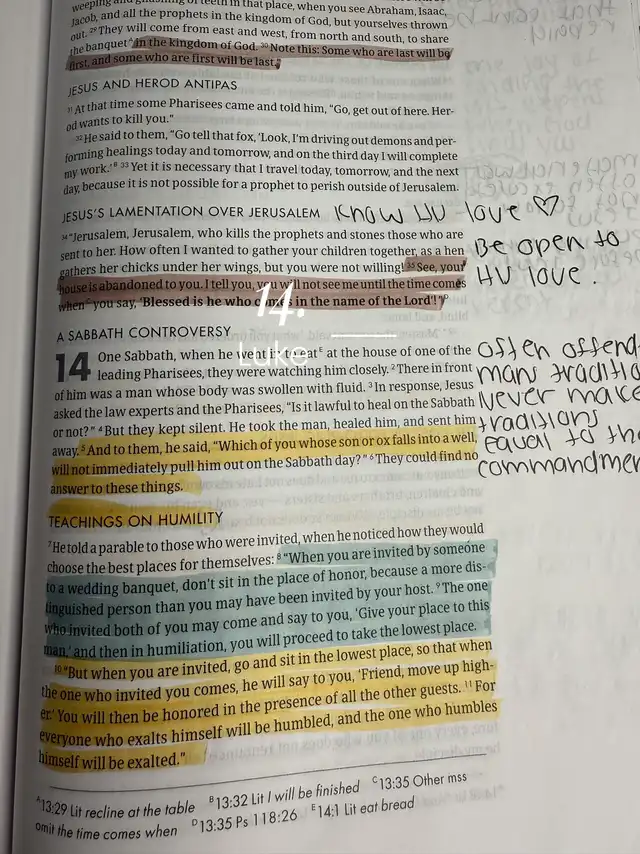 weeping and gnashing of teeth in that place, when you see Abraham, Isaac,
Jacob, and all the prophets in the kingdom of God, but yourselves thrown
out. 29 They will come from east and west, from north and south, to share
the banquet A in the kingdom of God. 30 Note this: Some who are last will be
first, and some who are first will be last."
JESUS AND HEROD ANTIPAS
31 At that time some Pharisees came and told him, "Go, get out of here. Her-
od wants to kill you."
32 He said to them, "Go tell that fox, 'Look, I'm driving out demons and per-
forming healings today and tomorrow, and on the third day I will complete
my work.' B 33 Yet it is necessary that I travel today, tomorrow, and the next
day, because it is not possible for a prophet to perish outside of Jerusalem.
JESUS'S LAMENTATION OVER JERUSALEM
Know HU love ♡
34 "Jerusalem, Jerusalem, who kills the prophets and stones those who are
sent to her. How often I wanted to gather your children together, as a hen
gathers her chicks under her wings, but you were not willing! 35 See, your
house is abandoned to you. I tell you, you will not see me until the time comes
when C you say, 'Blessed is he who comes in the name of the Lord'!" D
Be open to
HU love.
14.
Luke
A SABBATH CONTROVERSY
14 One Sabbath, when he went in to eat E at the house of one of the
leading Pharisees, they were watching him closely. 2 There in front
of him was a man whose body was swollen with fluid. 3 In response, Jesus
asked the law experts and the Pharisees, "Is it lawful to heal on the Sabbath
or not?" 4 But they kept silent. He took the man, healed him, and sent him
away. 5 And to them, he said, "Which of you whose son or ox falls into a well,
will not immediately pull him out on the Sabbath day?" 6 They could find no
answer to these things.
often offend
mans traditi
Never make
traditions
equal to th
commandmen
TEACHINGS ON HUMILITY
7 He told a parable to those who were invited, when he noticed how they would
choose the best places for themselves: 8 "When you are invited by someone
to a wedding banquet, don't sit in the place of honor, because a more dis-
tinguished person than you may have been invited by your host. 9 The one
who invited both of you may come and say to you, 'Give your place to this
man,' and then in humiliation, you will proceed to take the lowest place.
10 "But when you are invited, go and sit in the lowest place, so that when
the one who invited you comes, he will say to you, 'Friend, move up high-
er.' You will then be honored in the presence of all the other guests. 11 For
everyone who exalts himself will be humbled, and the one who humbles
himself will be exalted."
A 13:29 Lit recline at the table B 13:32 Lit I will be finished C 13:35 Other mss
omit the time comes when D 13:35 Ps 118:26 E 14:1 Lit eat bread